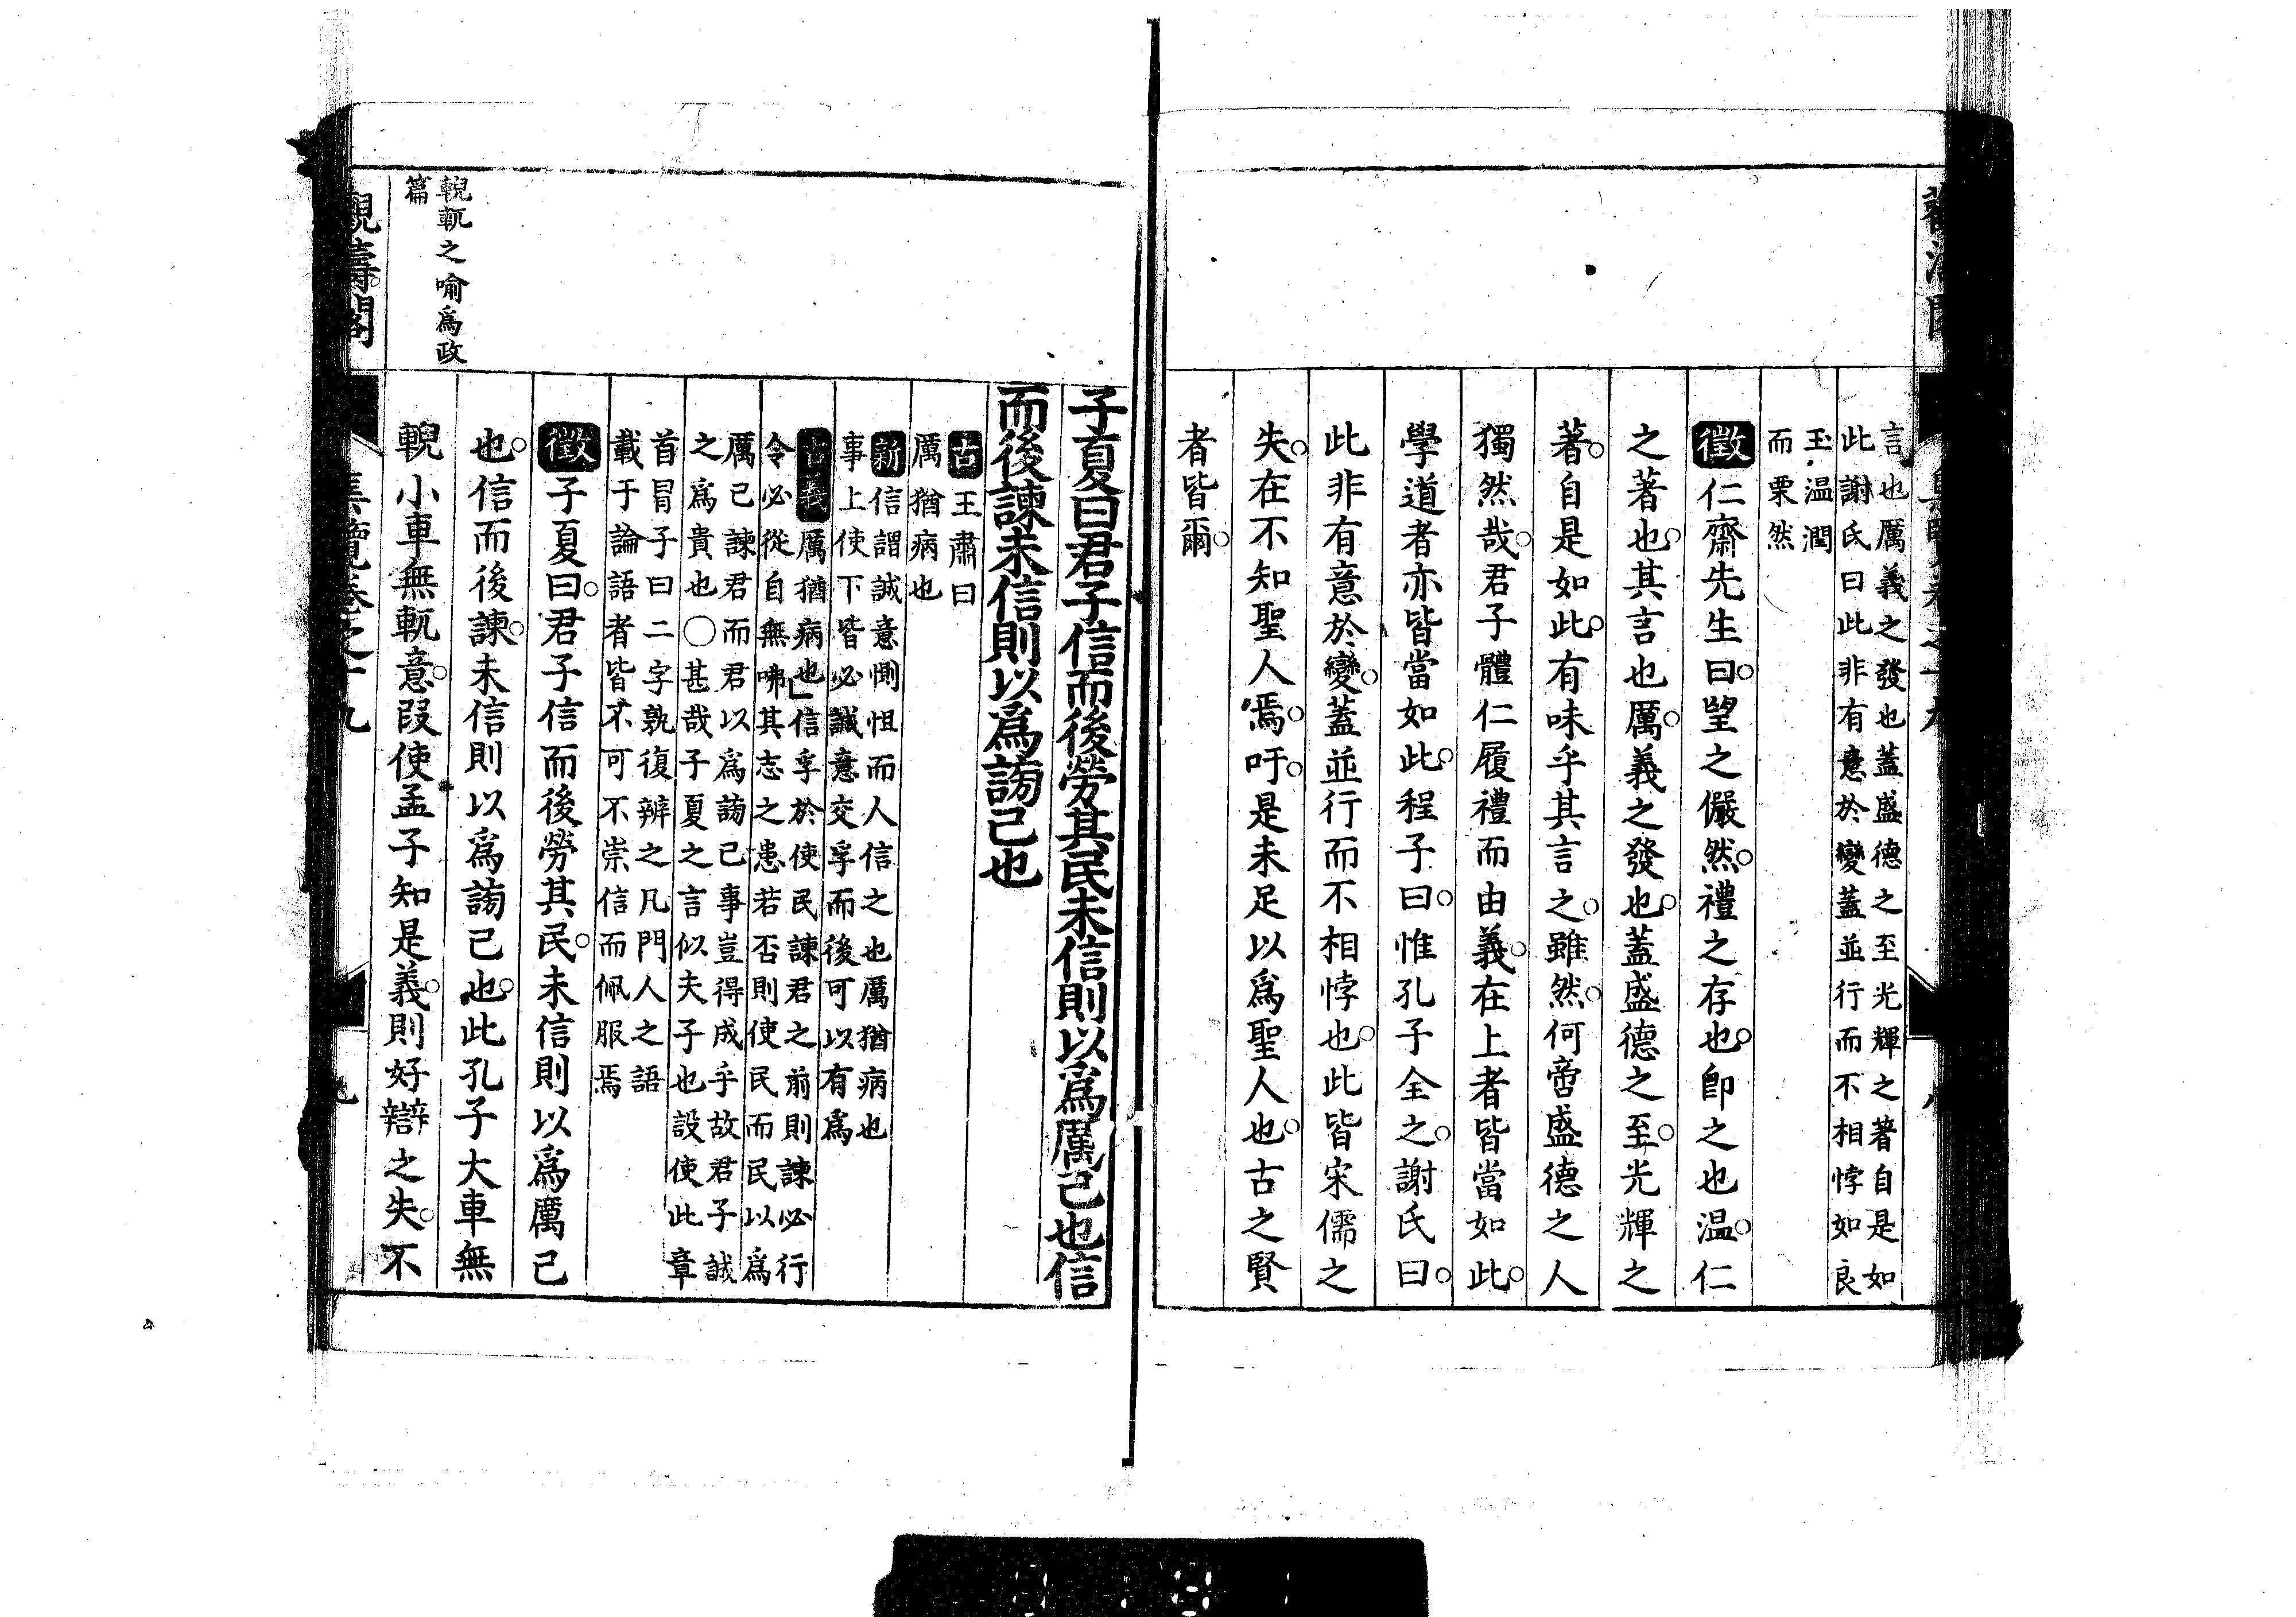 言也厲義之發也蓋盛德之至光輝之著自是如
此謝氏曰此非有意於變蓋並行而不相悖如良
玉溫潤
而栗然
徵仁齋先生曰望之儼然禮之存也卽之也溫仁
之著也其言也厲義之發也蓋盛德之至光輝之
著自是如此有味乎其言之雖然何啻盛德之人
獨然哉君子體仁履禮而由義在上者皆當如此
學道者亦皆當如此程子曰惟孔子全之謝氏曰
此非有意於變蓋並行而不相悖也此皆宋儒之
失在不知聖人焉吁是未足以爲聖人也古之賢
者皆爾
子夏曰君子信而後勞其民未信則以爲厲己也信
而後諫未信則以爲謗己也
古王肅曰
厲猶病也
新信謂誠意惻怛而人信之也厲猶病也
事上使下皆必誠意交孚而後可以有爲
古義厲猶病也信孚於使民諫君之前則諫必行
令必從自無咈其志之患若否則使民而民以爲
厲己諫君而君以爲謗己事豈得成乎故君子誠
之爲貴也○甚哉子夏之言似夫子也設使此章
首冐子曰二字孰復辨之凡門人之語
載于論語者皆不可不崇信而佩服焉
徵子夏曰君子信而後勞其民未信則以爲厲己
也信而後諫未信則以爲謗己也此孔子大車無
輗小車無軏意叚使孟子知是義則好辯之失不
輗軏之喻爲政
篇
觀濤閣
集覽卷之十九
九